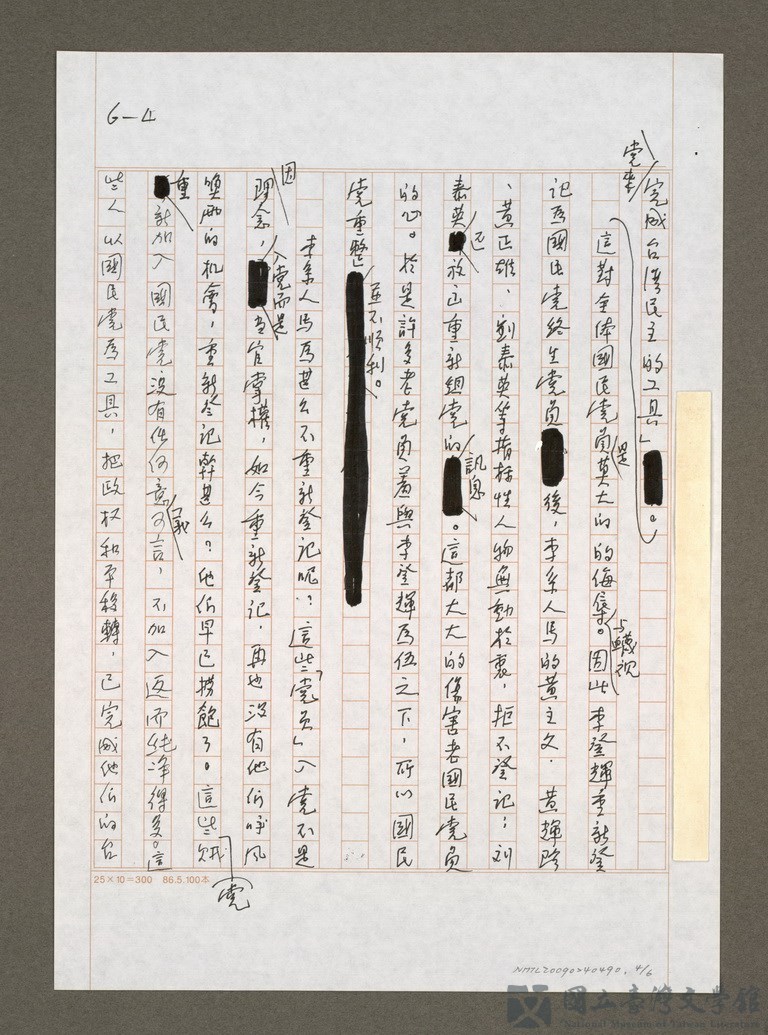 6-4
党来完成台湾民主的工具」。
這對全体國民党員是莫大的的侮辱与輕視。因此李登輝重新登
記為國民党終生党員後,李系人馬的黃主文、黃輝珍
、黃正雄、劉泰英等指标性人物無動於衷,拒不登記;刘
泰英还放出重新組党的訊息。這都大大的傷害老國民党員
的心。於是許多老党員羞與李登輝為伍之下,所以國民
党重整並不順利。
李系人馬為甚么不重新登記呢?這些「党员」入党不是
因理念,入党而是当官掌權,如今重新登記,再也沒有他们呼风
喚雨的机會,重新登記幹甚么?他们早已撈飽了。這些賊党
重新加入國民党沒有任何意義可言,不加入返而純净得多。這
些人以國民党為工具,把政权和平移轉,已完成他们的台
25×10=300 86.5.100本
NMTL20090240490, 4/6
國立臺灣文學館
National Museum of Taiwan Literature